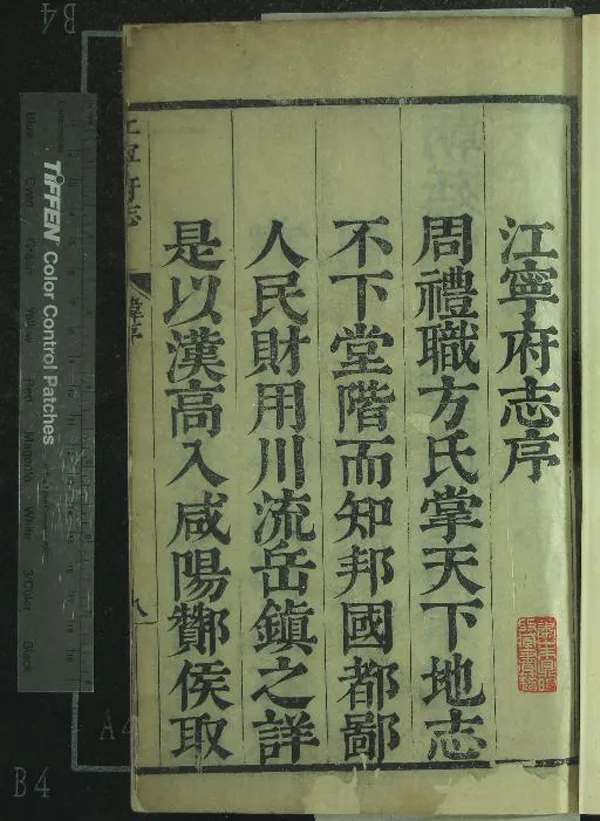 江寧府志序
周禮職方氏掌天下地志
不下堂階而知邦國都鄙
人民財用川流岳鎮之詳
是以漢高入咸陽酇侯取
江寧府志
八
TIFFEN Color Control Patches
Blue
Cyan
Green
Yellow
Red
Magenta
White
3/Color
Black
B4
A4
B4